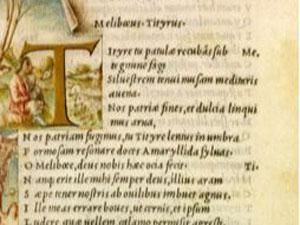 Meliboeus. Tityrus.
Tityre tu patulæ recubãs sub Me.
tegmine fagi
Siluestrem tenui musam meditaris
auena.
Nos patriæ fines, et dulcia linqui
mus arua,
Nos patriam fugimus, tu Tityre lentus in umbra
Formosam resonare doces Amaryllida syluas.
O Meliboee, deus nobis hæc ocia fecit. Ti.
Nanq; erit ille mihi semper deus, illius aram
Sæpe tener nostris ab ouilibus imbuet agnus,
Ille meas errare boues, ut cernis, et ipsum
Ludere quæ uellem calamo permisit agresti.